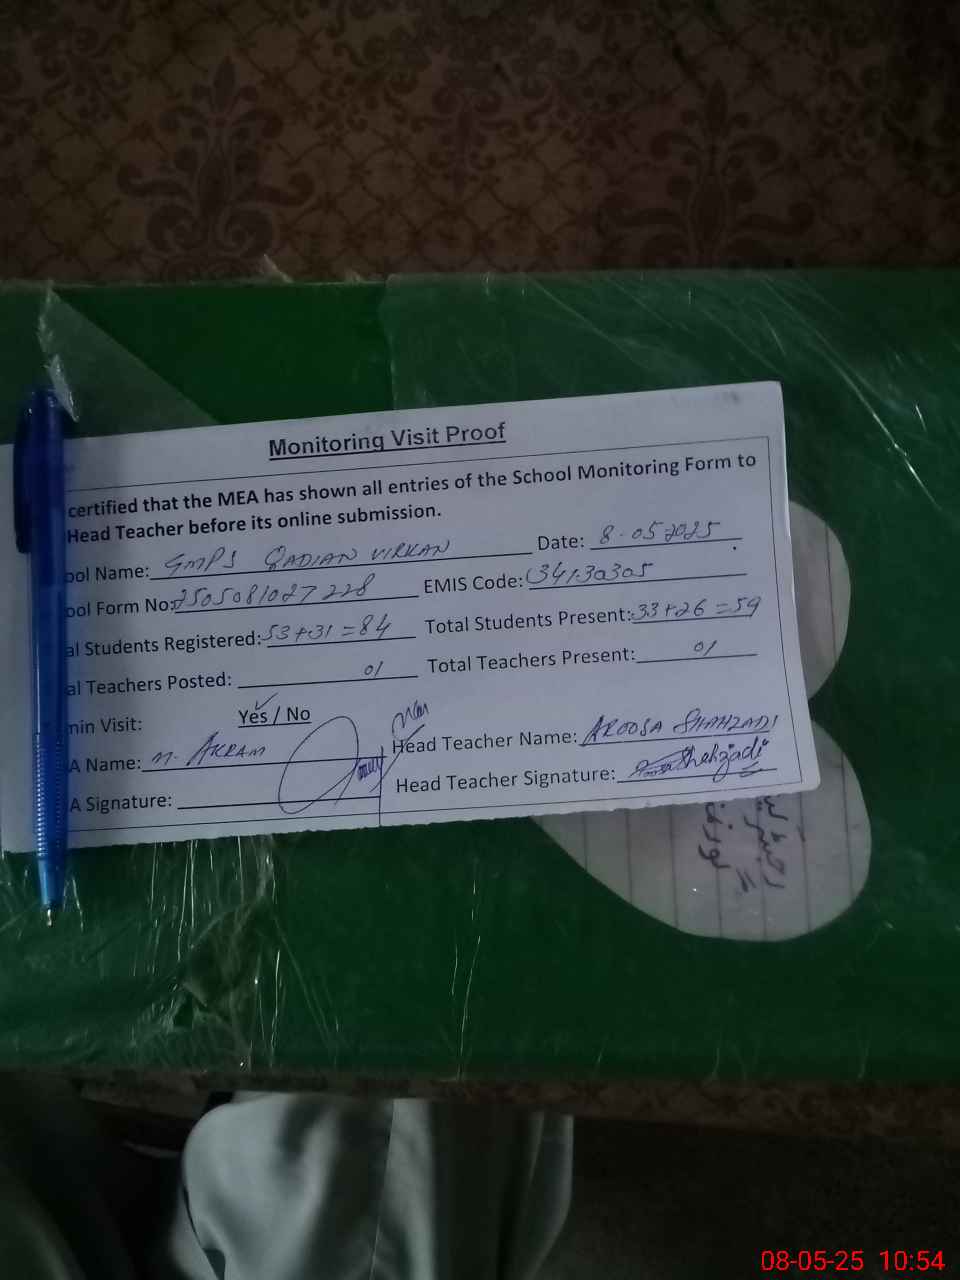 Monitoring Visit Proof
certified that the MEA has shown all entries of the School Monitoring Form to
Head Teacher before its online submission.
ool Name: GMPS QADIAN VIRKAN Date: 8-05-2025
ool Form No: 2505081027228 EMIS Code: 34130305
al Students Registered: 53+31=84 Total Students Present: 33+26=59
al Teachers Posted: 01 Total Teachers Present: 01
min Visit: Yes / No
A Name: M. AKRAM Head Teacher Name: AROOSA SHAHZADI
A Signature: Head Teacher Signature: Shahzadi
رجسٹر
08-05-25 10:54